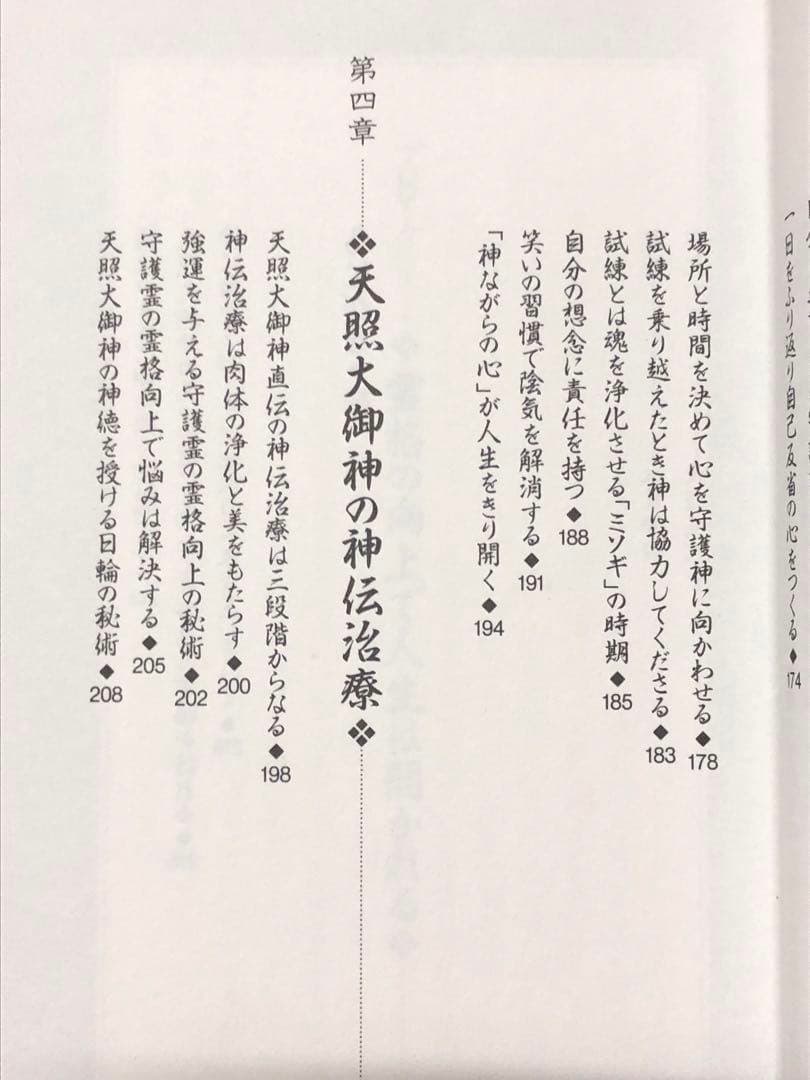 一日をふり返り自己反省の心をつくる◆174
場所と時間を決めて心を守護神に向かわせる◆178
試練を乗り越えたとき神は協力してくださる◆183
試練とは魂を浄化させる「ミソギ」の時期◆185
自分の想念に責任を持つ◆188
笑いの習慣で陰気を解消する◆191
「神ながらの心」が人生をきり開く◆194
第四章……❖天照大御神の神伝治療❖……
天照大御神直伝の神伝治療は三段階からなる◆198
神伝治療は肉体の浄化と美をもたらす◆200
強運を与える守護霊の霊格向上の秘術◆202
守護霊の霊格向上で悩みは解決する◆205
天照大御神の神徳を授ける日輪の秘術◆208